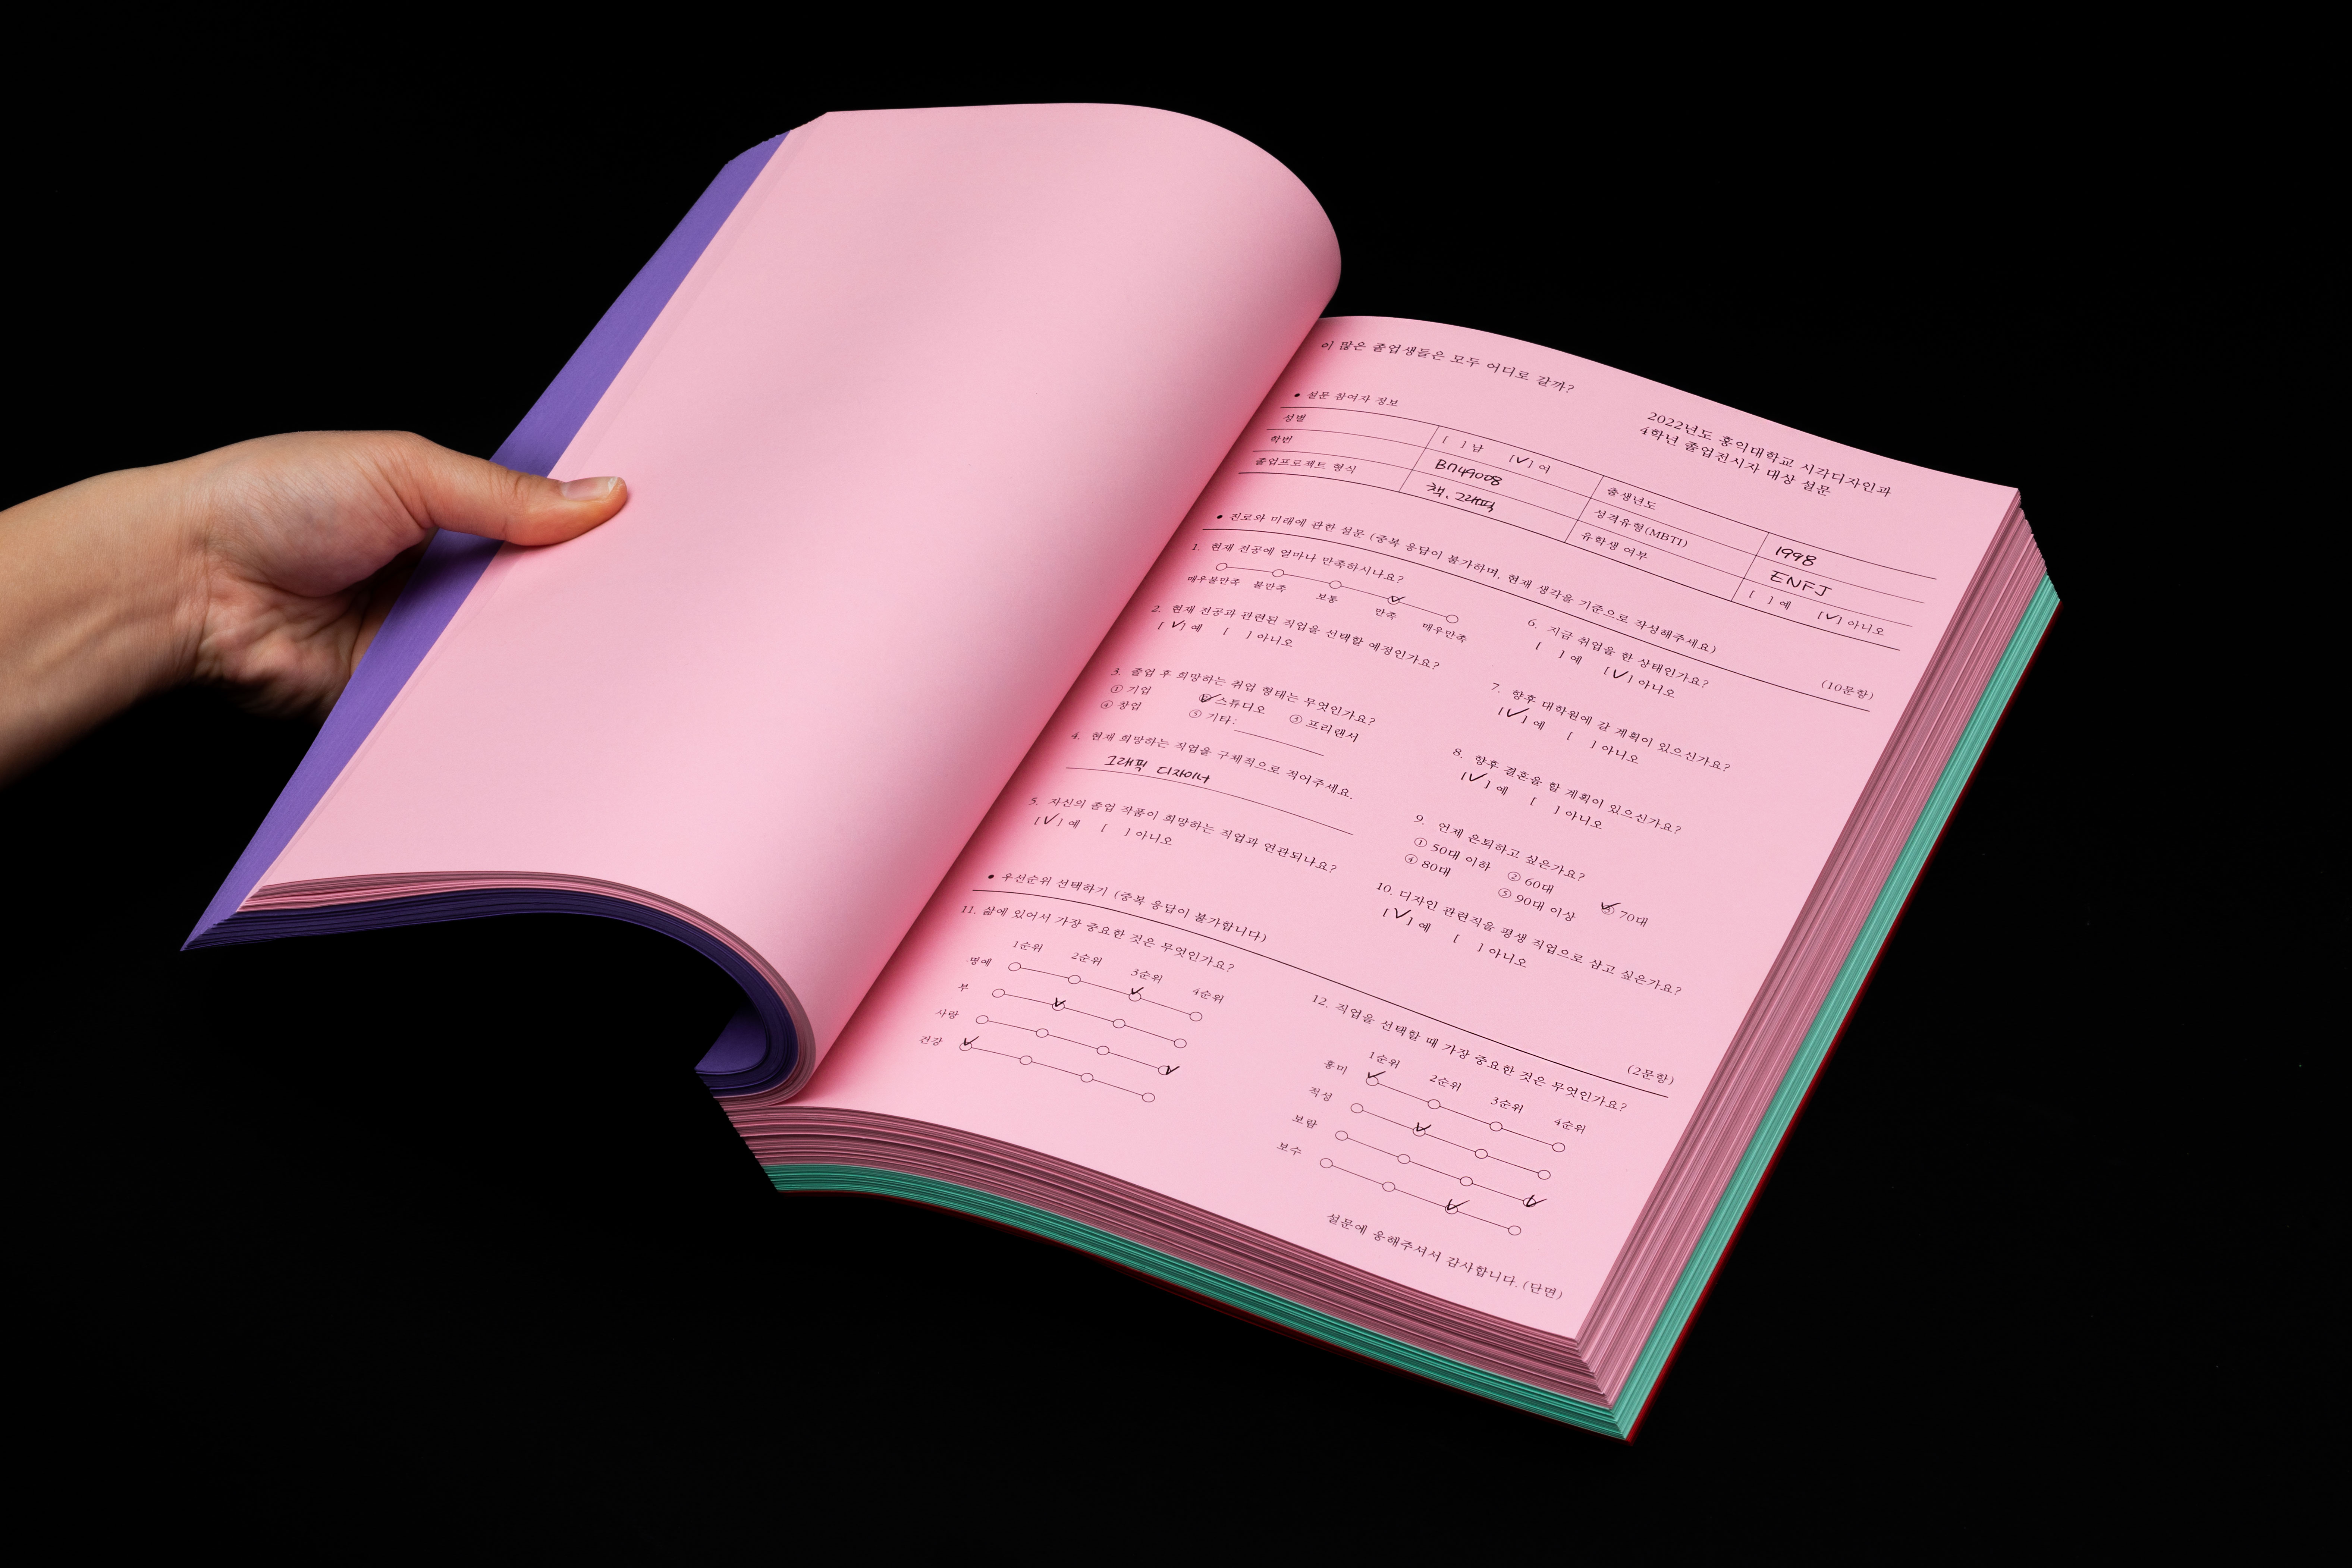 이 많은 졸업생들은 모두 어디로 갈까?
2022년도 홍익대학교 시각디자인과
4학년 졸업전시자 대상 설문
• 설문 참여자 정보
성별 [ ] 남 [✓] 여 출생년도 1998
학번 B749008 성격유형(MBTI) ENFJ
졸업프로젝트 형식 책, 그래픽 유학생 여부 [ ] 예 [✓] 아니오
• 진로와 미래에 관한 설문 (중복 응답이 불가하며, 현재 생각을 기준으로 작성해주세요) (10문항)
1. 현재 전공에 얼마나 만족하시나요?
매우불만족 불만족 보통 만족 매우만족
2. 현재 전공과 관련된 직업을 선택할 예정인가요?
[✓] 예 [ ] 아니오
3. 졸업 후 희망하는 취업 형태는 무엇인가요?
① 기업 ✓스튜디오 ③ 프리랜서
④ 창업 ⑤ 기타:
4. 현재 희망하는 직업을 구체적으로 적어주세요.
그래픽 디자이너
5. 자신의 졸업 작품이 희망하는 직업과 연관되나요?
[✓] 예 [ ] 아니오
6. 지금 취업을 한 상태인가요?
[ ] 예 [✓] 아니오
7. 향후 대학원에 갈 계획이 있으신가요?
[✓] 예 [ ] 아니오
8. 향후 결혼을 할 계획이 있으신가요?
[✓] 예 [ ] 아니오
9. 언제 은퇴하고 싶은가요?
① 50대 이하 ② 60대 ✓③ 70대
④ 80대 ⑤ 90대 이상
10. 디자인 관련직을 평생 직업으로 삼고 싶은가요?
[✓] 예 [ ] 아니오
• 우선순위 선택하기 (중복 응답이 불가합니다) (2문항)
11. 삶에 있어서 가장 중요한 것은 무엇인가요?
1순위 2순위 3순위 4순위
명예
부
사랑
건강
12. 직업을 선택할 때 가장 중요한 것은 무엇인가요?
1순위 2순위 3순위 4순위
흥미
적성
보람
보수
설문에 응해주셔서 감사합니다. (단면)